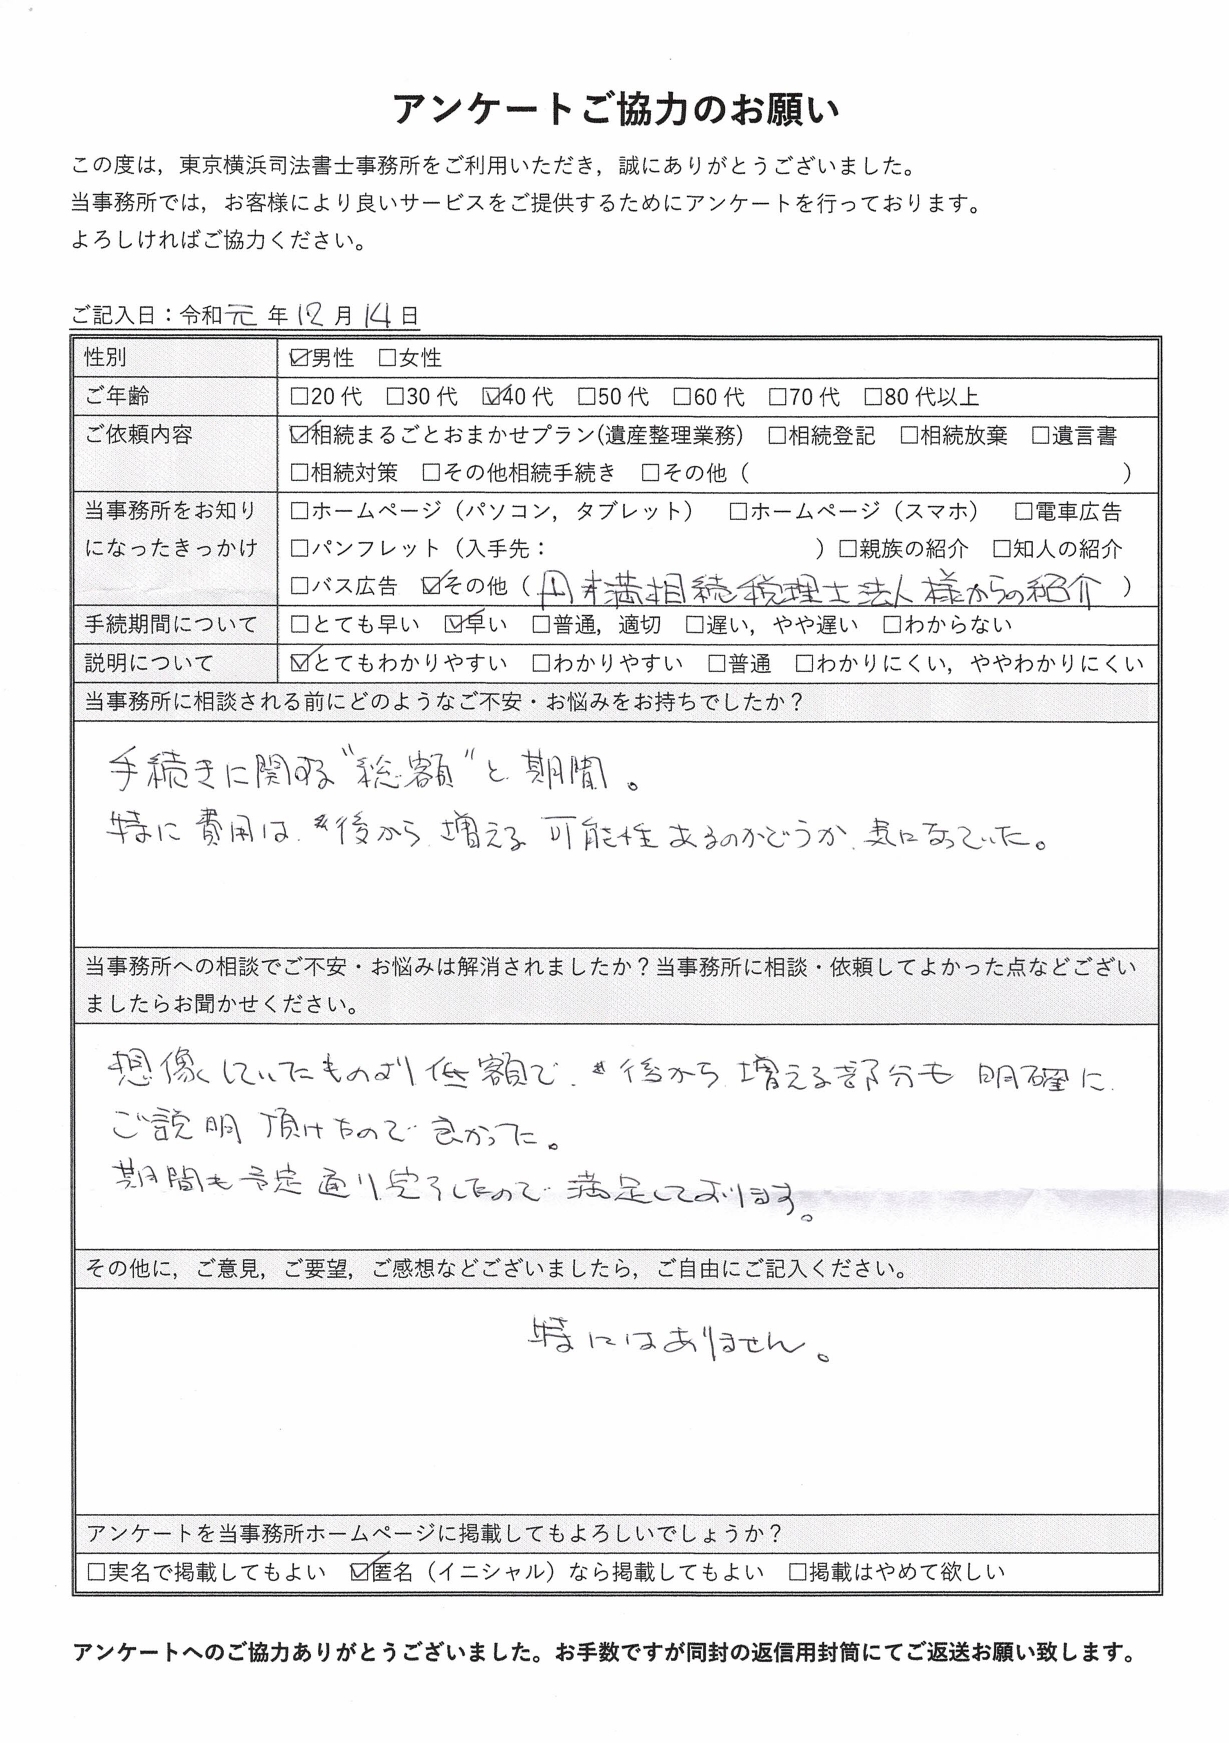 アンケートご協力のお願い
この度は，東京横浜司法書士事務所をご利用いただき，誠にありがとうございました。
当事務所では，お客様により良いサービスをご提供するためにアンケートを行っております。
よろしければご協力ください。
ご記入日：令和元年12月14日
性別 ☑男性 □女性
ご年齢 □20代 □30代 ☑40代 □50代 □60代 □70代 □80代以上
ご依頼内容 ☑相続まるごとおまかせプラン(遺産整理業務) □相続登記 □相続放棄 □遺言書
□相続対策 □その他相続手続き □その他（ ）
当事務所をお知り □ホームページ（パソコン，タブレット） □ホームページ（スマホ） □電車広告
になったきっかけ □パンフレット（入手先： ）□親族の紹介 □知人の紹介
□バス広告 ☑その他（円満相続税理士法人様からの紹介）
手続期間について □とても早い ☑早い □普通，適切 □遅い，やや遅い □わからない
説明について ☑とてもわかりやすい □わかりやすい □普通 □わかりにくい，ややわかりにくい
当事務所に相談される前にどのようなご不安・お悩みをお持ちでしたか？
手続きに関する"総額"と期間。
特に費用は、後から増える可能性あるのかどうか、気になっていた。
当事務所への相談でご不安・お悩みは解消されましたか？当事務所に相談・依頼してよかった点などござい
ましたらお聞かせください。
想像していたものより低額で、後から増える部分も明確に
ご説明頂けたので良かった。
期間も予定通り完了したので満足しております。
その他に，ご意見，ご要望，ご感想などございましたら，ご自由にご記入ください。
特にはありません。
アンケートを当事務所ホームページに掲載してもよろしいでしょうか？
□実名で掲載してもよい ☑匿名（イニシャル）なら掲載してもよい □掲載はやめて欲しい
アンケートへのご協力ありがとうございました。お手数ですが同封の返信用封筒にてご返送お願い致します。